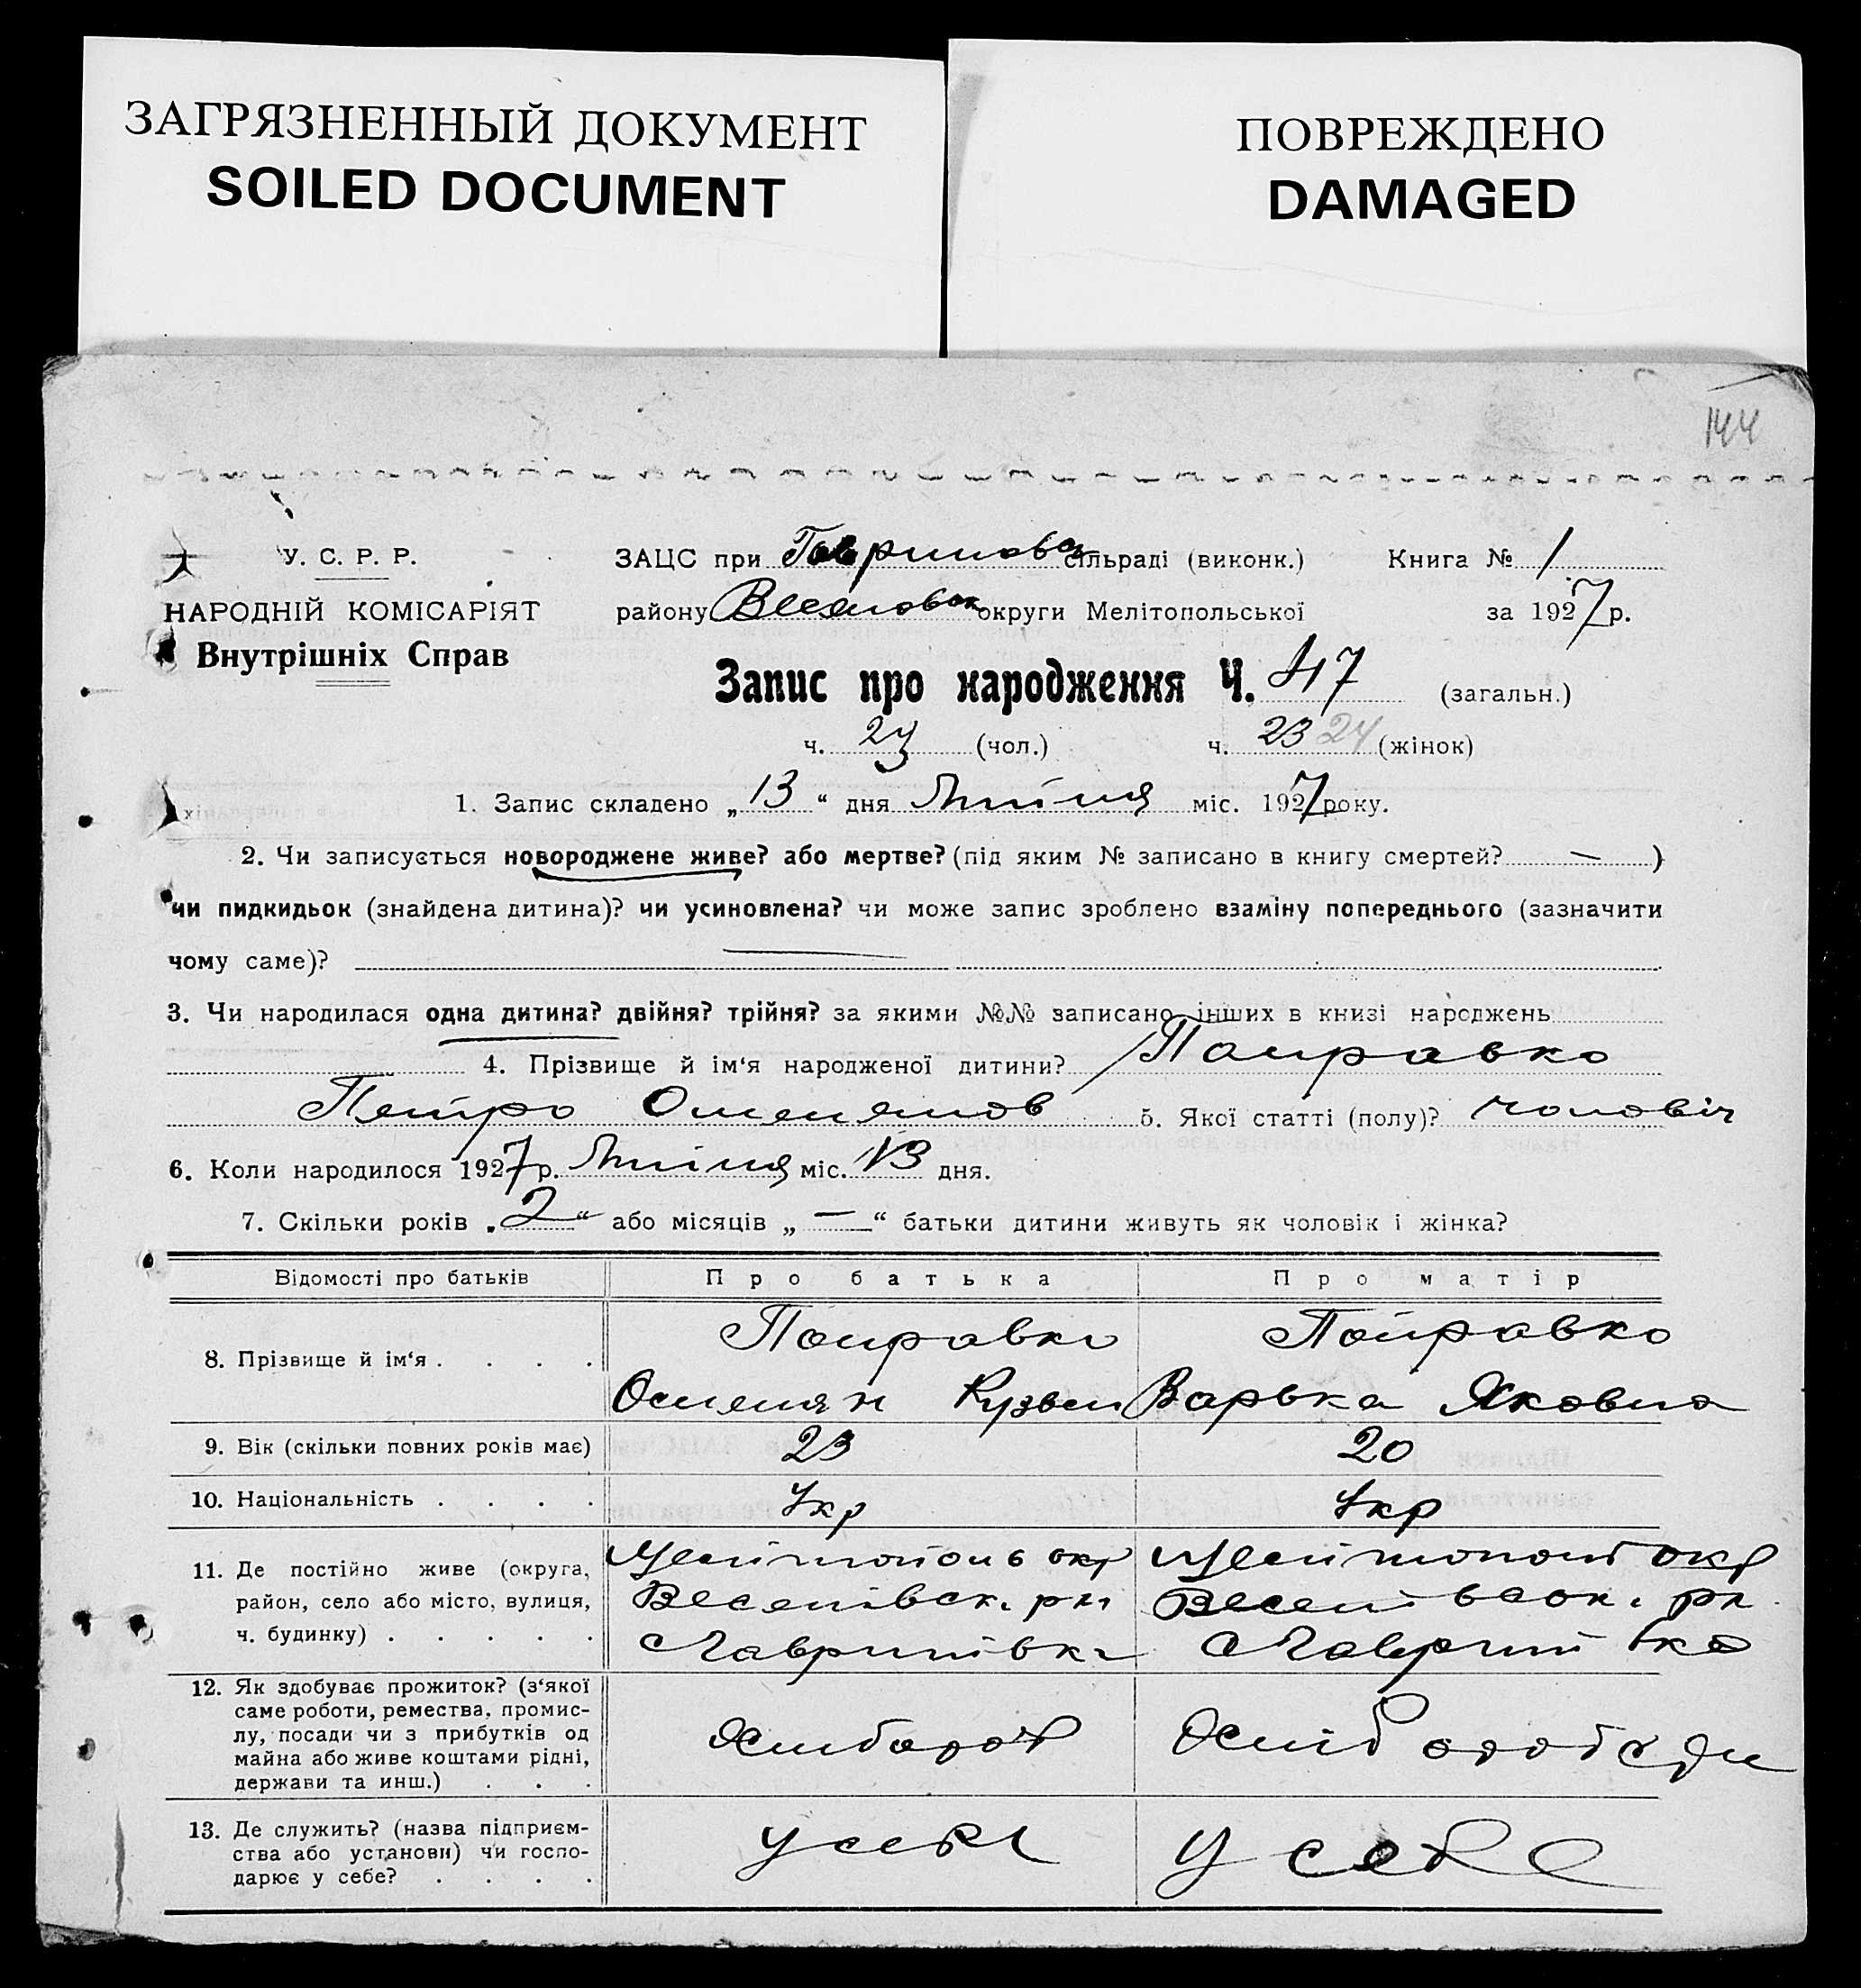 ЗАГРЯЗНЕННЫЙ ДОКУМЕНТ
SOILED DOCUMENT
ПОВРЕЖДЕНО
DAMAGED
144
У. С. Р. Р.
НАРОДНІЙ КОМІСАРІЯТ
Внутрішніх Справ
ЗАЦС при сільраді (виконк.) Книга № 1
району округи Мелітопольської за 1927 р.
Запис про народження Ч. 47 (загальн.)
ч. 23 (чол.) ч. 23 24 (жінок)
1. Запис складено „13“ дня Липня міс. 1927 року.
2. Чи записується новороджене живе? або мертве? (під яким № записано в книгу смертей? — )
чи пидкидьок (знайдена дитина)? чи усиновлена? чи може запис зроблено взаміну попереднього (зазначити
чому саме)?
3. Чи народилася одна дитина? двійня? трійня? за якими №№ записано інших в книзі народжень
4. Прізвище й ім‘я народженої дитини? Поправко
Петро 5. Якої статті (полу)? чоловіч
6. Коли народилося 1927 р. Липня міс. 13 дня.
7. Скільки років „2“ або місяців „ — “ батьки дитини живуть як чоловік і жінка?
Відомості про батьків Про батька Про матір
8. Прізвище й ім‘я . . . . Поправко Поправко
Варька Яковна
9. Вік (скільки повних років має) 23 20
10. Національність . . . . Укр Укр
11. Де постійно живе (округа, Мелітополь окр Мелітополь окр
район, село або місто, вулиця, Веселівск. рн Веселівск. рн
ч. будинку) . . . . . с Гаврилівка с Гаврилівка
12. Як здобуває прожиток? (з‘якої
саме роботи, ремества, промис-
лу, посади чи з прибутків од
майна або живе коштами рідні,
держави та инш.) . . . Хлібороб
13. Де служить? (назва підприєм-
ства або установи) чи госпо-
дарює у себе? . . . . у себе у себе